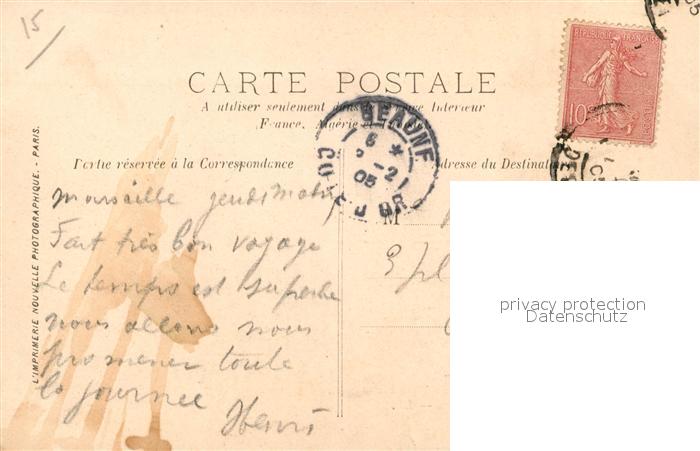 15
RÉPUBLIQUE FRANÇAISE
10
CARTE POSTALE
A utiliser seulement dans le Service Intérieur
France, Algérie et Tunisie
BEAUNE
6
-2
05
COTE D'OR
Partie réservée à la Correspondance
Adresse du Destinataire
M
Marseille jeudi matin
Fait très bon voyage
Le temps est superbe
nous allons nous
promener toute
la journée
Henri
L'IMPRIMERIE NOUVELLE PHOTOGRAPHIQUE. - PARIS.
privacy protection
Datenschutz